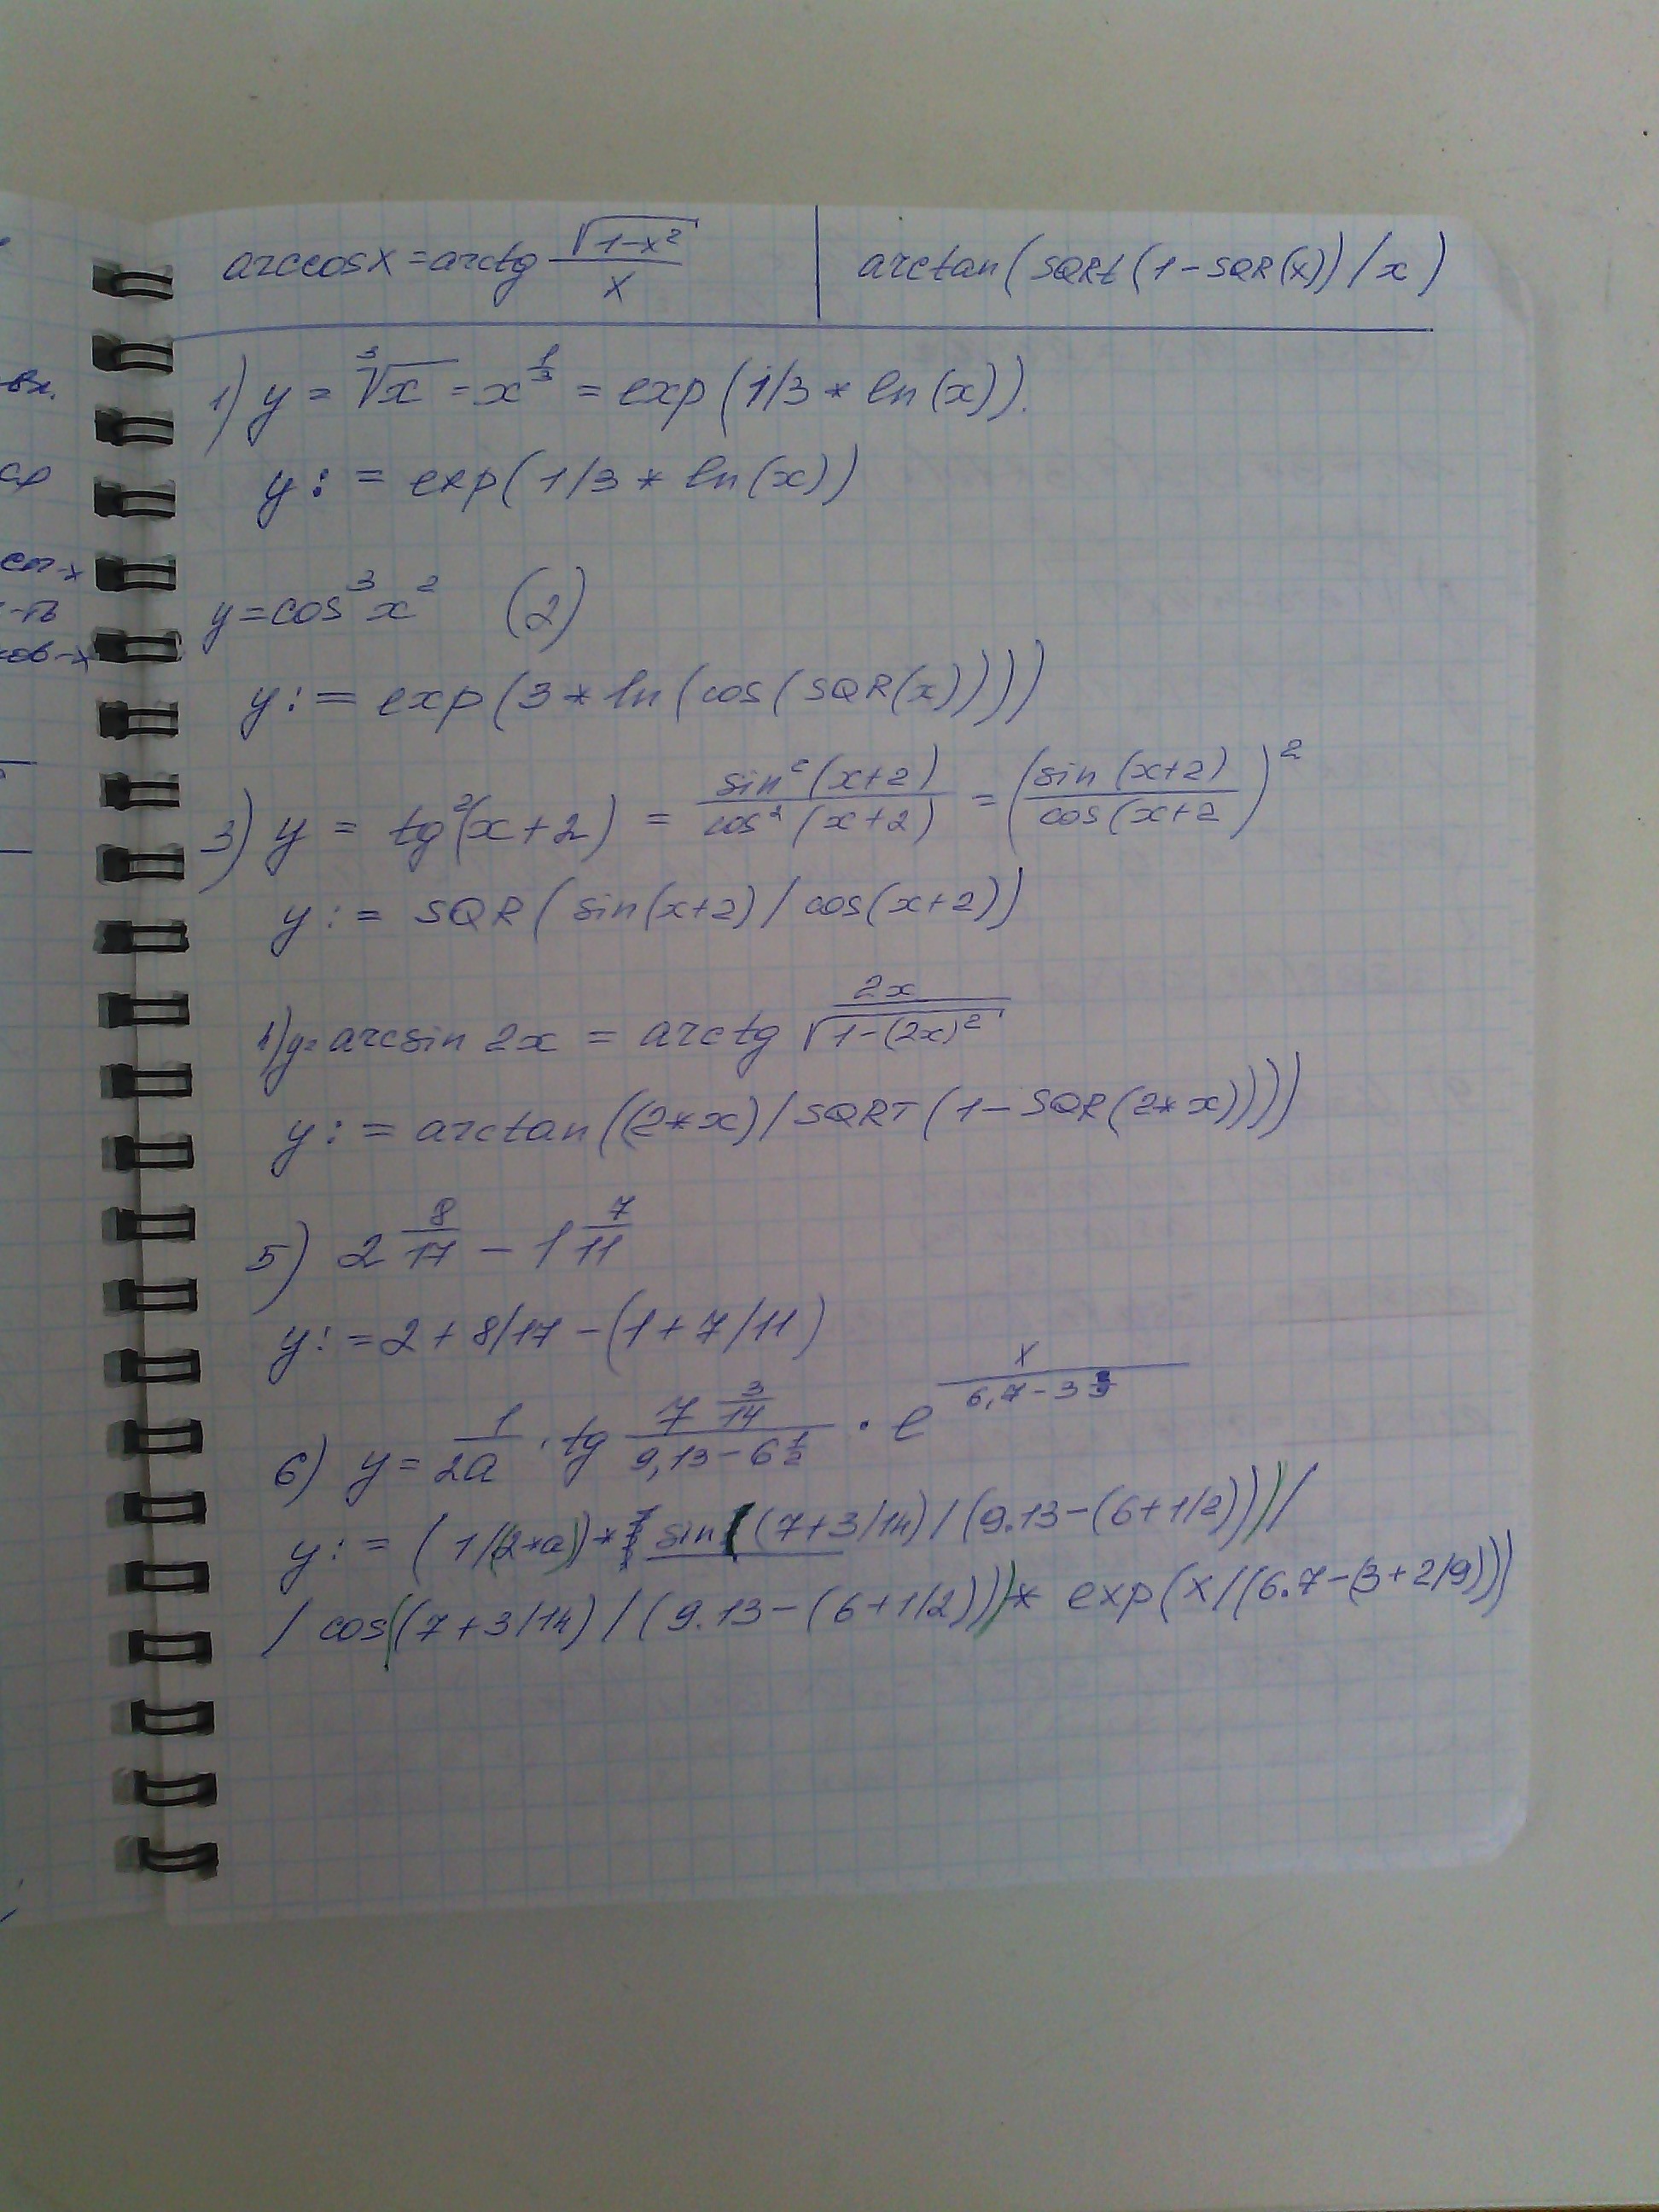 arccosx = arctg √(1-x²)/x | arctan(SQRt(1-SQR(x))/x)
1) y = ∛x = x^(1/3) = exp(1/3 * ln(x)).
y := exp(1/3 * ln(x))
y = cos³x² (2)
y := exp(3 * ln(cos(SQR(x))))
3) y = tg²(x+2) = sin²(x+2)/cos²(x+2) = (sin(x+2)/cos(x+2)²
y := SQR(sin(x+2)/cos(x+2))
y= arcsin 2x = arctg 2x/√(1-(2x)²)
y := arctan((2*x)/SQRT(1-SQR(2*x))))
5) 2 8/17 - 1 7/11
y := 2 + 8/17 - (1 + 7/11)
6) y = 1/2a · tg (7 3/14)/(9,13 - 6 1/2) · e^(x/(6,7 - 3 2/9))
y := (1/(2*a))* sin((7+3/14)/(9.13-(6+1/2)))/
/ cos((7+3/14)/(9.13-(6+1/2)))* exp(x/(6.7-(3+2/9)))
вх.
ср